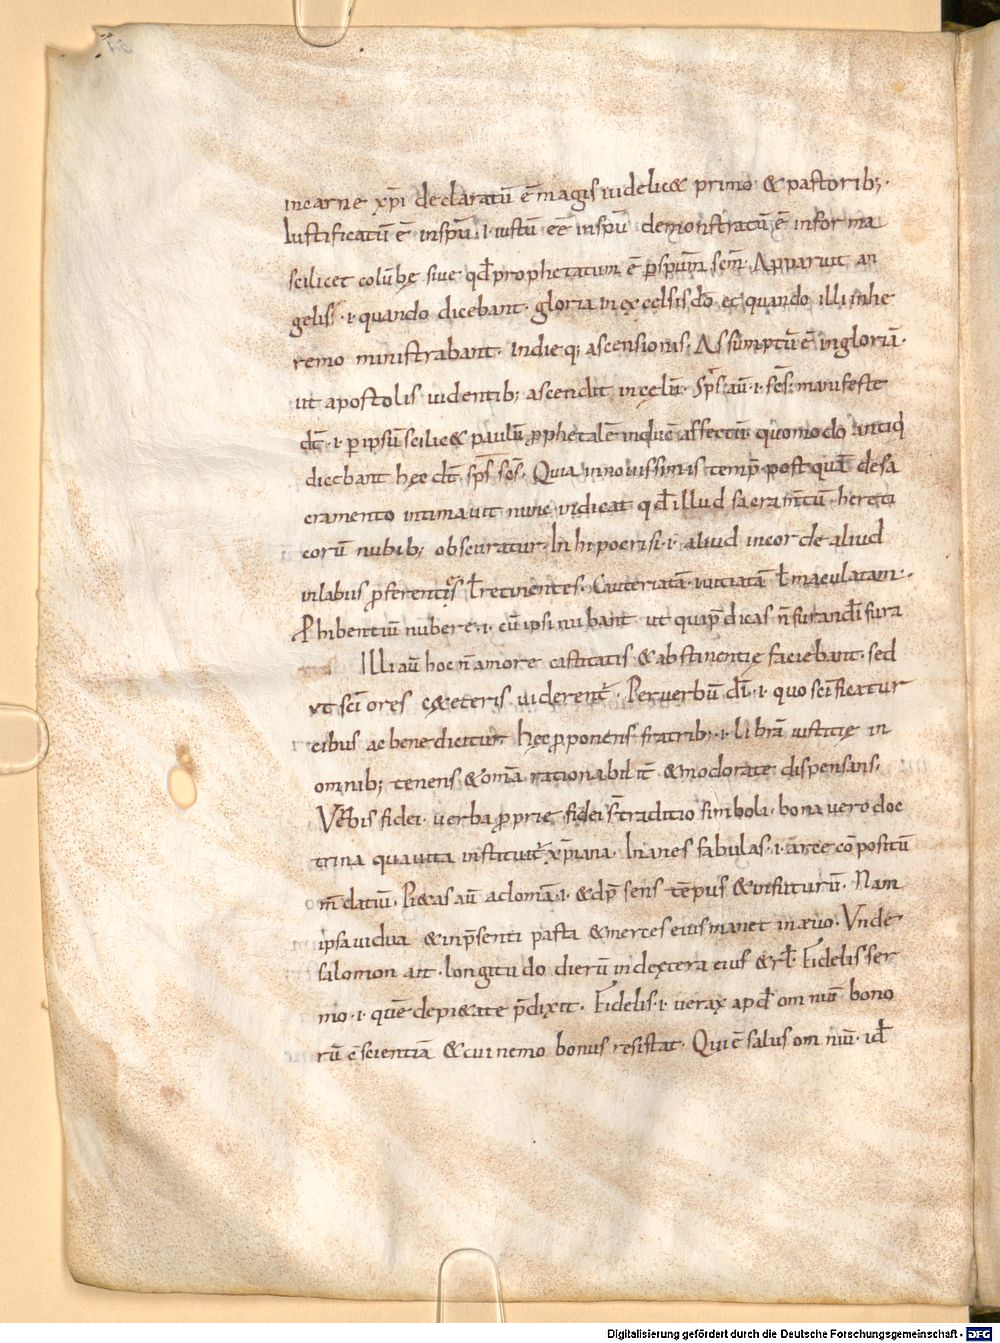 incarne xp̄i declaratū ē magis uidelic& primo & pastorib;·
Iustificatū ē inspū·i·iustū eē inspū demonstratū ē informa
scilicet colūbę siue qđ prophetatum ē p̱ spūm sc̄m· Apparuit an
gelis·i·quando dicebant· gloria in excelsis dō et quando illi inhe
remo ministrabant· Indieq; ascensionis· Assūmptū ē ingloriā·
ut apostolis uidentib; ascendit incęlū· Sps̄ aū·i·sc̄s· manifeste
dc̄t·i·p̱ ipsū scilic& paulū ꝓphetalē induēs affectū· quomodo antiq̇
dicebant hęc dc̄t sps̄ sc̄s· Quia innouissimis temp̄· postquā desa
cramento intimauit nunc indicat qđ illud sacram̄tū hereti
corū nubib; obscuratur· In hipocrisi·i· aliud incorde aliud
inlabiis p̄ferentes ł retinentes· Cauteriatā· uiciatā ł maculatam·
Phibentiū nubere·i· cū ipsi nubant ut qui p̄dicas n̄ furandū fura
Illi aū hoc n̄ amore castitatis & abstinentię faciebant· sed
ut sc̄iores cęteris uiderent̄· Per uerbū dī·i· quo sc̄ificatur
cibus ac benedicitur· Hęc ꝓponens fratrib;·i· libra iustitię in
omnib; tenens & om̄a rationabilit̄ & moderate dispensans·
Verbis fidei· uerba ꝓprie fidei s̄ traditio simboli· bona uero doc
trina qua uita instituit̄ xp̄iana· Inanes fabulas·i· arte cōpositū
m̄datiū· Pi&as aū ad om̄a·i· & p̄sens tēpus & infuturū· Nam
ipsa uidua & inp̄senti pasta & merces eius manet in æuo· Vnde
salomon ait· longitudo dierū indextera eius & rł· Fidelis ser
mo·i· quē de pi&ate p̄dixit· Fidelis·i· uerax apđ omniū bono
rū cscientiā & cui nemo bonus resistat· Qui ē salus omniū· iđ
Digitalisierung gefördert durch die Deutsche Forschungsgemeinschaft - DFG